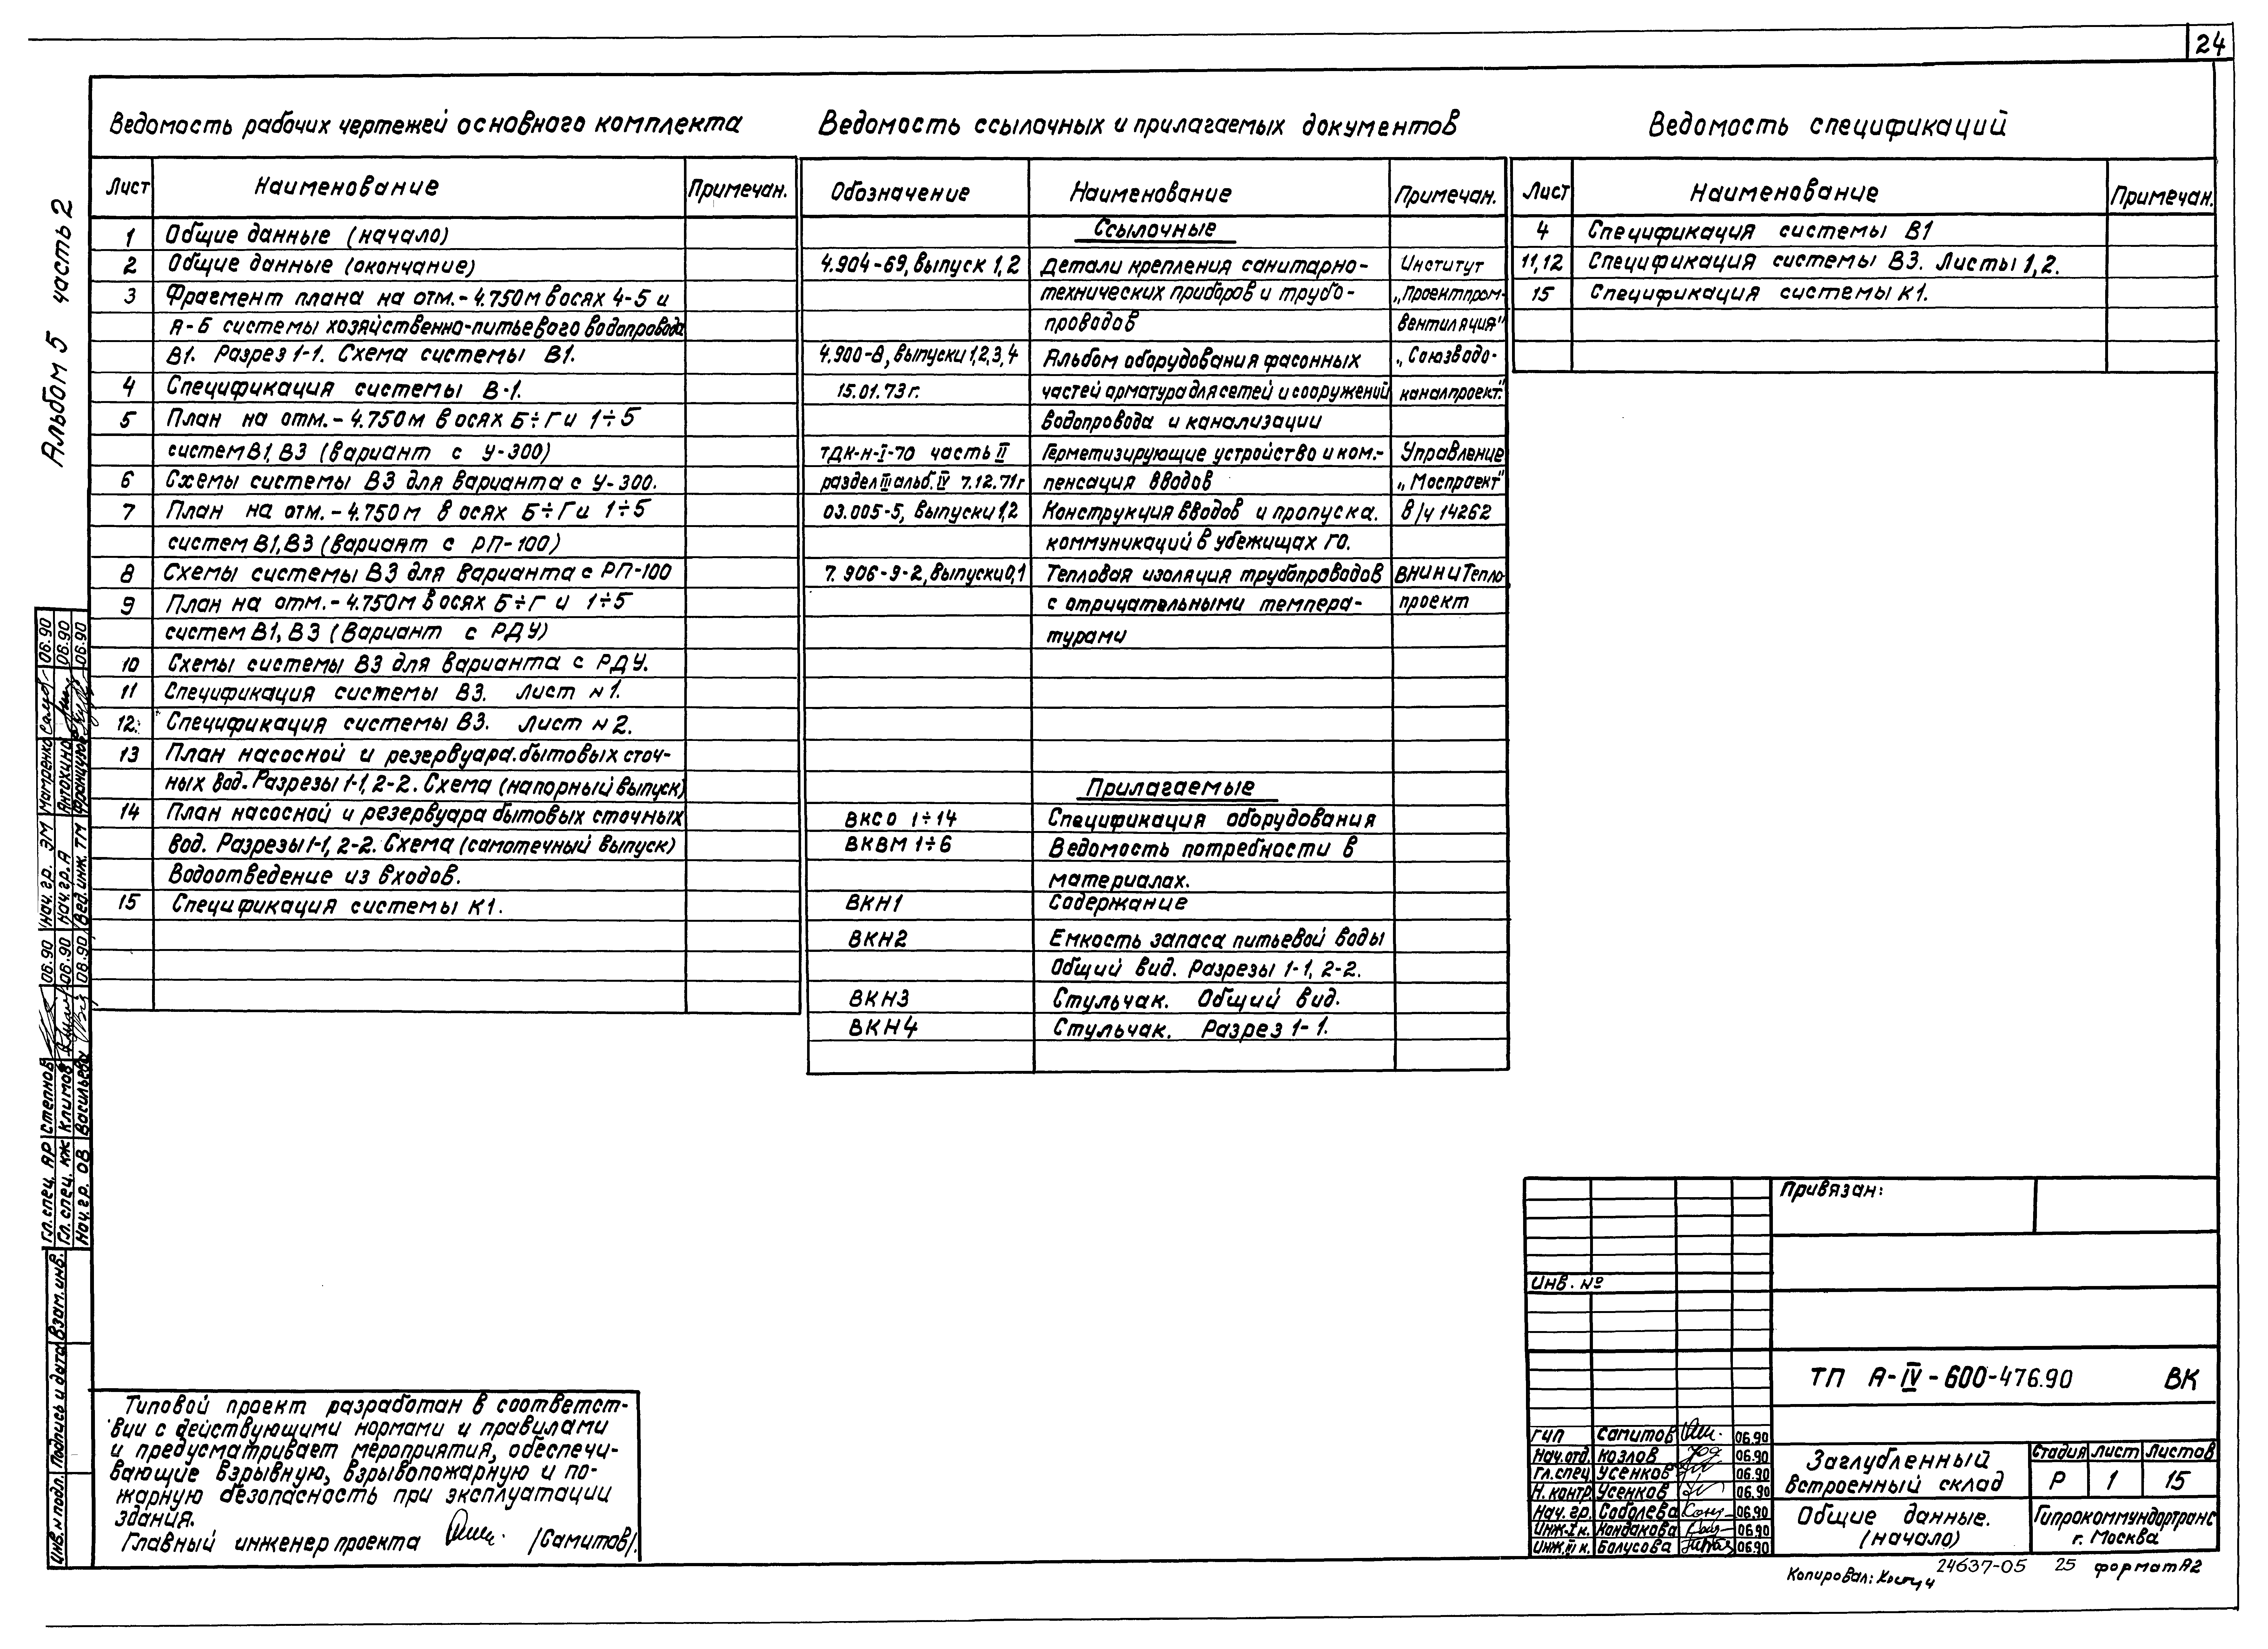 24
Альбом 5 часть 2
Ведомость рабочих чертежей основного комплекта
Лист Наименование Примечан.
1 Общие данные (начало)
2 Общие данные (окончание)
3 Фрагмент плана на отм. - 4.750м в осях 4-5 и
А-Б системы хозяйственно-питьевого водопровода
В1. Разрез 1-1. Схема системы В1.
4 Спецификация системы В-1.
5 План на отм. - 4.750м в осях Б÷Г и 1÷5
систем В1, В3 (вариант с У-300)
6 Схемы системы В3 для варианта с У-300.
7 План на отм. - 4.750м в осях Б÷Г и 1÷5
систем В1, В3 (вариант с РП-100)
8 Схемы системы В3 для варианта с РП-100
9 План на отм. - 4.750м в осях Б÷Г и 1÷5
систем В1, В3 (Вариант с РДУ)
10 Схемы системы В3 для варианта с РДУ.
11 Спецификация системы В3. Лист н 1.
12 Спецификация системы В3. Лист н 2.
13 План насосной и резервуара.бытовых сточ-
ных вод. Разрезы 1-1, 2-2. Схема (напорный выпуск)
14 План насосной и резервуара бытовых сточных
вод. Разрезы 1-1, 2-2. Схема (самотечный выпуск)
Водоотведение из входов.
15 Спецификация системы К1.
Ведомость ссылочных и прилагаемых документов
Обозначение Наименование Примечан.
Ссылочные
4.904-69, выпуск 1, 2 Детали крепления санитарно- Институт
технических приборов и трубо- „Проектпром-
проводов вентиляция"
4.900-8, выпуски 1,2,3,4 Альбом оборудования фасонных „Союзводо-
15.01.73г. частей арматура для сетей и сооружений каналпроект."
водопровода и канализации
ТДК-Н-I-70 часть II Герметизирующие устройство и ком.- Управление
раздел III альб. IV 7.12.71г пенсация вводов „Моспроект"
03.005-5, выпуски 1,2 Конструкция вводов и пропуска. в/ч 14262
коммуникаций в убежищах ГО.
7.906-9-2, выпуски 0,1 Тепловая изоляция трубопроводов ВНИНиТепло
с отрицательными темпера- проект
турами
Прилагаемые
ВКСО 1÷14 Спецификация оборудования
ВКВМ 1÷6 Ведомость потребности в
материалах.
ВКН1 Содержание
ВКН2 Емкость запаса питьевой воды
Общий вид. Разрезы 1-1, 2-2.
ВКН3 Стульчак. Общий вид.
ВКН4 Стульчак. Разрез 1-1.
Ведомость спецификаций
Лист Наименование Примечан.
4 Спецификация системы В1
11,12 Спецификация системы В3. Листы 1, 2.
15 Спецификация системы К1.
Гл. спец. АР Степнов 06.90 Нач. гр. ЭМ Матренко 06.90
Гл. спец. КЖ Климов 06.90 Нач. гр. А Антохина 06.90
Нач. гр. ОВ Васильева 08.90 Вед. инж. ТМ Французов 06.90
Инв. н подл. Подпись и дата Взам. инв.
Типовой проект разработан в соответст-
вии с действующими нормами и правилами
и предусматривает мероприятия, обеспечи-
вающие взрывную, взрывопожарную и по-
жарную безопасность при эксплуатации
здания.
Главный инженер проекта /Самитов/.
Привязан:
Инв. №
ТП А-IV-600-476.90 ВК
ГИП Самитов 06.90
Нач. отд. Козлов 06.90
Гл. спец Усенков 06.90
Н. контр. Усенков 06.90
Нач. гр. Соболева 06.90
Инж. I к. Кондакова 06.90
Инж. III к. Болусова 06.90
Заглубленный
встроенный склад
Стадия Лист Листов
Р 1 15
Общие данные.
(начало)
Гипрокоммундортранс
г. Москва
Копировал: 24637-05 25 формат А2